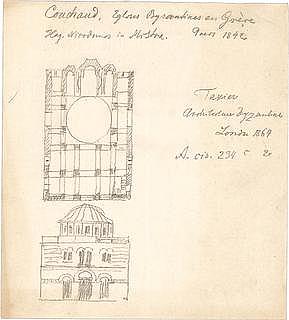 Couchaud, Eglises Byzantines en Grèce
Hag. Nicodemus in Athen. Paris 1842
Texier
Architecture byzantine
London 1864
A. civ. 234 c 2o